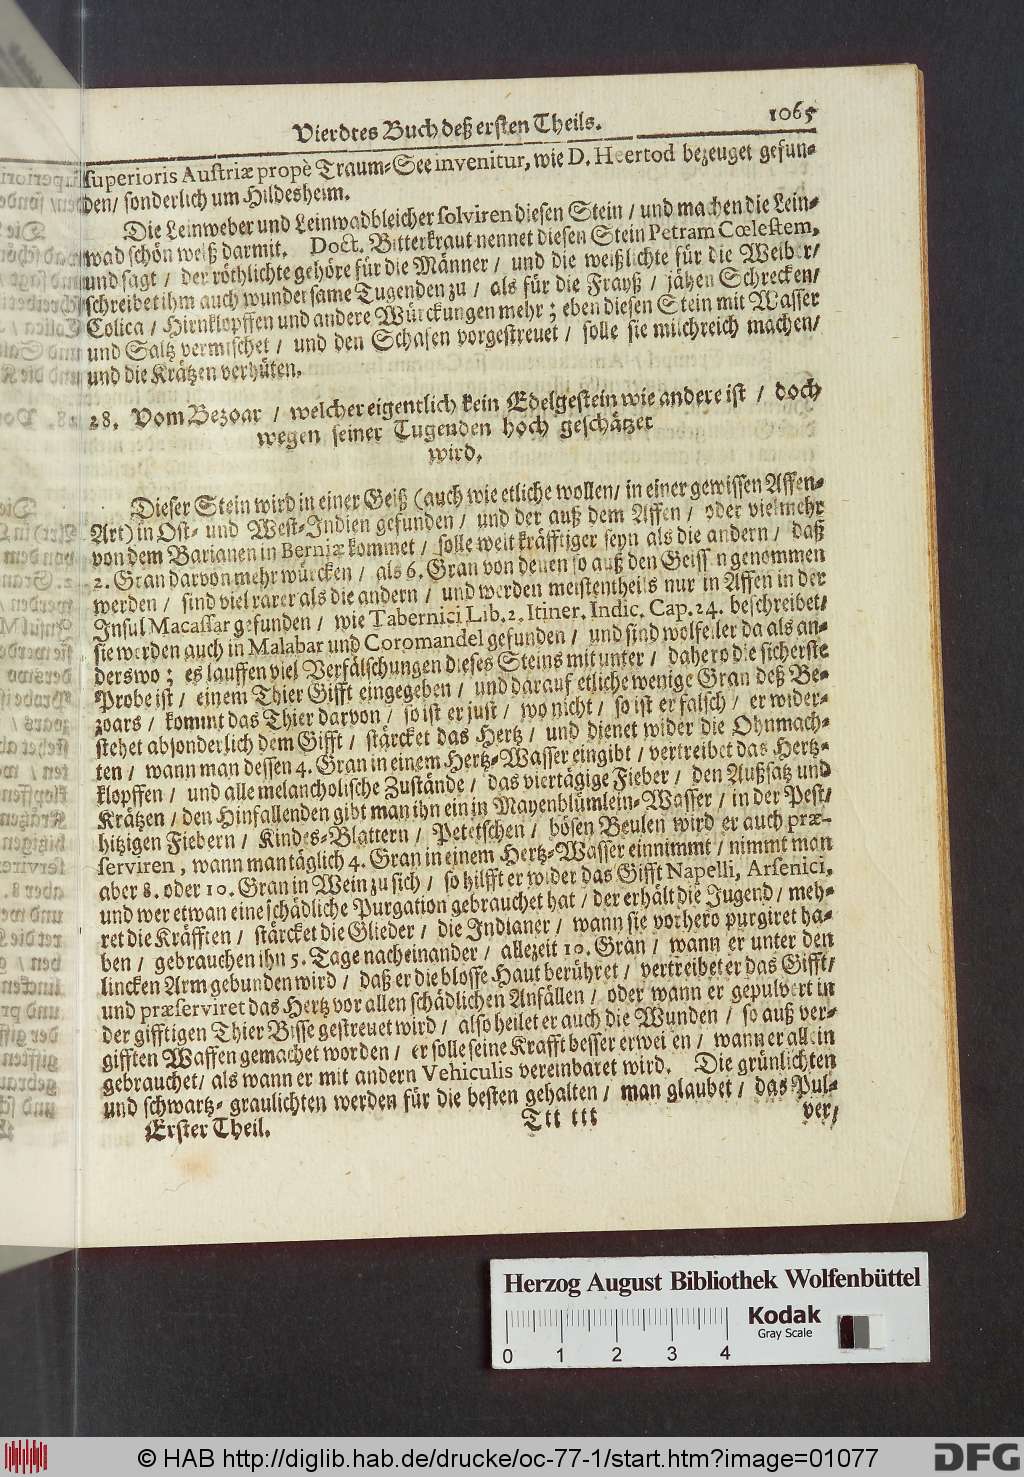 Vierdtes Buch deß ersten Theils. 1065
superioris Austriæ propè Traum-See invenitur, wie D. Heertod bezeuget gefun-
den/ sonderlich um Hildesheim.
Die Leinweber und Leinwadbleicher solviren diesen Stein / und machen die Lein-
wad schön weiß darmit. Doct. Bitterkraut nennet diesen Stein Petram Cœlestem,
und sagt / der röthlichte gehöre für die Männer / und die weißlichte für die Weiber/
schreibet ihm auch wundersame Tugenden zu / als für die Frayß / jähen Schrecken/
Colica / Hirnklopffen und andere Würckungen mehr ; eben diesen Stein mit Wasser
und Saltz vermischet / und den Schafen vorgestreuet / solle sie milchreich machen/
und die Krätzen verhüten.
28. Vom Bezoar / welcher eigentlich kein Edelgestein wie andere ist / doch
wegen seiner Tugenden hoch geschätzet
wird.
Dieser Stein wird in einer Geiß (auch wie etliche wollen/ in einer gewissen Affen-
Art) in Ost- und West-Indien gefunden / und der auß dem Affen / oder vielmehr
von dem Barianen in Berniæ kommet / solle weit kräfftiger seyn als die andern / daß
2. Gran darvon mehr würcken / als 6. Gran von denen so auß den Geissen genommen
werden / sind viel rarer als die andern / und werden meistentheils nur in Affen in der
Insul Macassar gefunden / wie Tabernici Lib. 2. Itiner. Indic. Cap. 24. beschreibet/
sie werden auch in Malabar und Coromandel gefunden / und sind wolfeiler da als an-
derswo ; es lauffen viel Verfälschungen dieses Steins mit unter / dahero die sicherste
Probe ist / einem Thier Gifft eingegeben / und darauf etliche wenige Gran deß Be-
zoars / kommt das Thier darvon / so ist er just / wo nicht / so ist er falsch / er wider-
stehet absonderlich dem Gifft / stärcket das Hertz / und dienet wider die Ohnmach-
ten / wann man dessen 4. Gran in einem Hertz-Wasser eingibt / vertreibet das Hertz-
klopffen / und alle melancholische Zustände / das viertägige Fieber / den Außsatz und
Krätzen / den Hinfallenden gibt man ihn ein in Mayenblümlein-Wasser / in der Pest/
hitzigen Fiebern / Kindes-Blattern / Petetschen / bösen Beulen wird er auch præ-
serviren , wann man täglich 4. Gran in einem Hertz-Wasser einnimmt / nimmt man
aber 8. oder 10. Gran in Wein zu sich / so hilfft er wider das Gifft Napelli, Arsenici,
und wer etwan eine schädliche Purgation gebrauchet hat / der erhält die Jugend / meh-
ret die Kräfften / stärcket die Glieder / die Indianer / wann sie vorhero purgiret ha-
ben / gebrauchen ihn 5. Tage nacheinander / allezeit 10. Gran / wann er unter den
lincken Arm gebunden wird / daß er die blosse Haut berühret / vertreibet er das Gifft/
und præserviret das Hertz vor allen schädlichen Anfällen / oder wann er gepulvert in
der gifftigen Thier Bisse gestreuet wird / also heilet er auch die Wunden / so auß ver-
gifften Waffen gemachet worden / er solle seine Krafft besser erweisen / wann er allein
gebrauchet/ als wann er mit andern Vehiculis vereinbaret wird. Die grünlichten
und schwartz-graulichten werden für die besten gehalten / man glaubet / das Pul-
Erster Theil. Ttt ttt ver/
Herzog August Bibliothek Wolfenbüttel
Kodak
Gray Scale
0 1 2 3 4
© HAB http://diglib.hab.de/drucke/oc-77-1/start.htm?image=01077
DFG